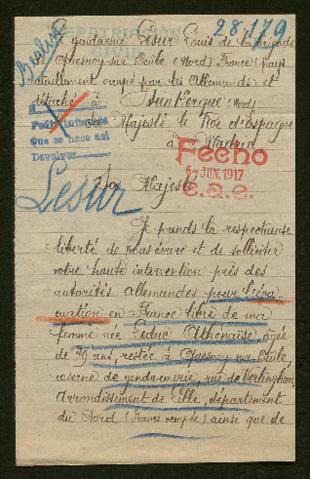 28.179
Le gendarme Lesur Louis de la brigade
Quesnoy sur Deûle (Nord) France (Pays
actuellement occupé par les Allemands) et
détaché à Dunkerque (Nord)
à Sa Majesté le Roi d'Espagne
à Madrid
que se hace así
Devolver
Fecho
6- JUN. 1917
e.a.e.
Lesur
Majesté
Je prends la respectueuse
liberté de vous écrire et de solliciter
votre haute intervention près des
autorités Allemandes pour l'éva
cuation en France libre de ma
femme née Leduc Athénaïse, âgée
de 29 ans, restée à Quesnoy sur Deûle
caserne de gendarmerie, rue de Verlinghem,
Arrondissement de Lille, département
du Nord (France occupée) ainsi que de